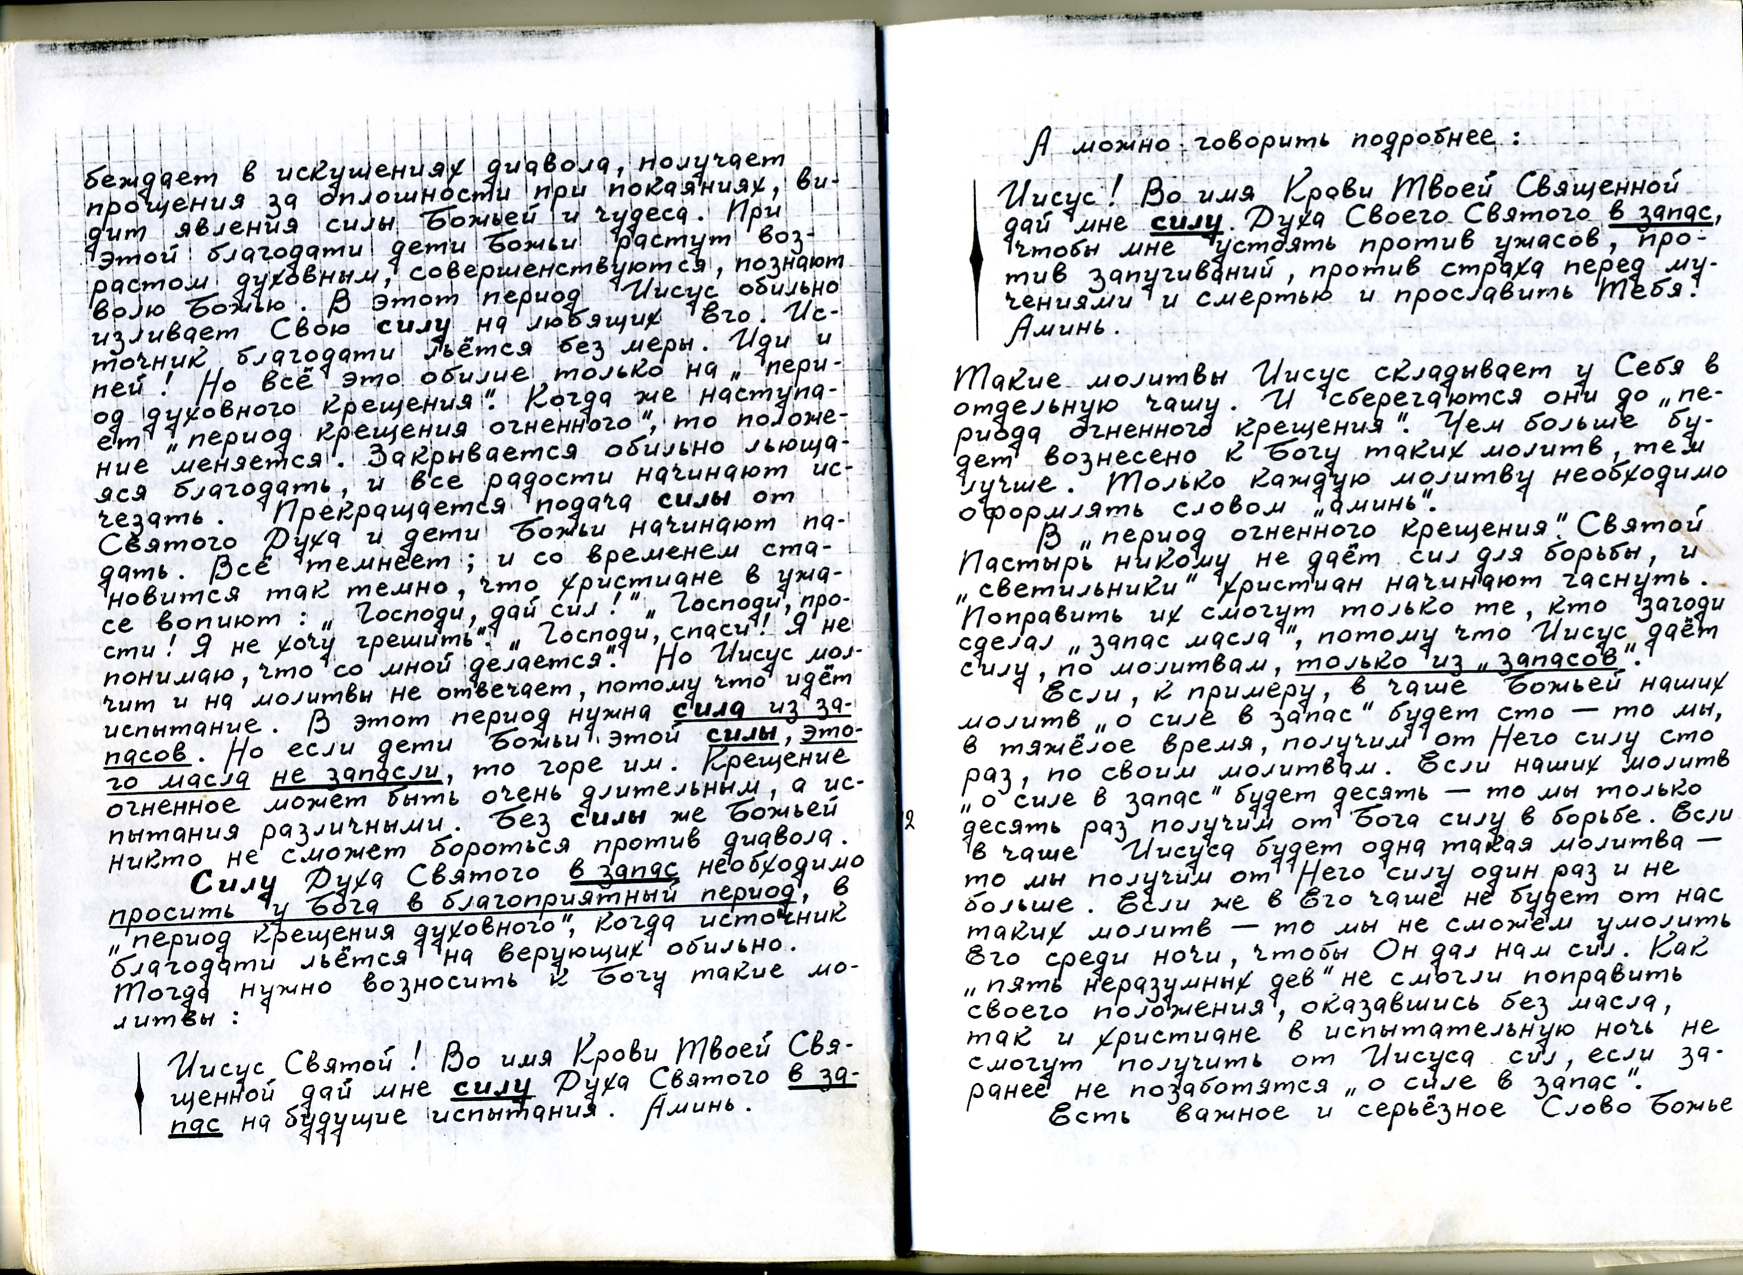 беждает в искушениях диавола, получает
прощения за оплошности при покаяниях, ви-
дит явления силы Божьей и чудеса. При
этой благодати дети Божьи растут воз-
растом духовным, совершенствуются, познают
волю Божью. В этот период Иисус обильно
изливает Свою силу на любящих Его. Ис-
точник благодати льётся без меры. Иди и
пей! Но всё это обилие только на „пери-
од духовного крещения". Когда же наступа-
ет „период крещения огненного", то положе-
ние меняется. Закрывается обильно льюща-
яся благодать, и все радости начинают ис-
чезать. Прекращается подача силы от
Святого Духа и дети Божьи начинают па-
дать. Всё темнеет; и со временем ста-
новится так темно, что христиане в ужа-
се вопиют: „Господи, дай сил!" „Господи, про-
сти! Я не хочу грешить". „Господи, спаси! Я не
понимаю, что со мной делается". Но Иисус мол-
чит и на молитвы не отвечает, потому что идёт
испытание. В этот период нужна сила из за-
пасов. Но если дети Божьи этой силы, это-
го масла не запасли, то горе им. Крещение
огненное может быть очень длительным, а ис-
пытания различными. Без силы же Божьей
никто не сможет бороться против диавола.
Силу Духа Святого в запас необходимо
просить у Бога в благоприятный период, в
„период крещения духовного", когда источник
благодати льётся на верующих обильно.
Тогда нужно возносить к Богу такие мо-
литвы:
Иисус Святой! Во имя Крови Твоей Свя-
щенной дай мне силу Духа Святого в за-
пас на будущие испытания. Аминь.
2
А можно говорить подробнее:
Иисус! Во имя Крови Твоей Священной
дай мне силу Духа Своего Святого в запас,
чтобы мне устоять против ужасов, про-
тив запугиваний, против страха перед му-
чениями и смертью и прославить Тебя.
Аминь.
Такие молитвы Иисус складывает у Себя в
отдельную чашу. И сберегаются они до „пе-
риода огненного крещения". Чем больше бу-
дет вознесено к Богу таких молитв, тем
лучше. Только каждую молитву необходимо
оформлять словом „аминь".
В „период огненного крещения" Святой
Пастырь никому не даёт сил для борьбы, и
„светильники" христиан начинают гаснуть.
Поправить их смогут только те, кто загоди
сделал „запас масла", потому что Иисус даёт
силу, по молитвам, только из „запасов".
Если, к примеру, в чаше Божьей наших
молитв „о силе в запас" будет сто — то мы,
в тяжёлое время, получим от Него силу сто
раз, по своим молитвам. Если наших молитв
„о силе в запас" будет десять — то мы только
десять раз получим от Бога силу в борьбе. Если
в чаше Иисуса будет одна такая молитва —
то мы получим от Него силу один раз и не
больше. Если же в Его чаше не будет от нас
таких молитв — то мы не сможем умолить
Его среди ночи, чтобы Он дал нам сил. Как
„пять неразумных дев" не смогли поправить
своего положения, оказавшись без масла,
так и христиане в испытательную ночь не
смогут получить от Иисуса сил, если за-
ранее не позаботятся „о силе в запас".
Есть важное и серьёзное Слово Божье